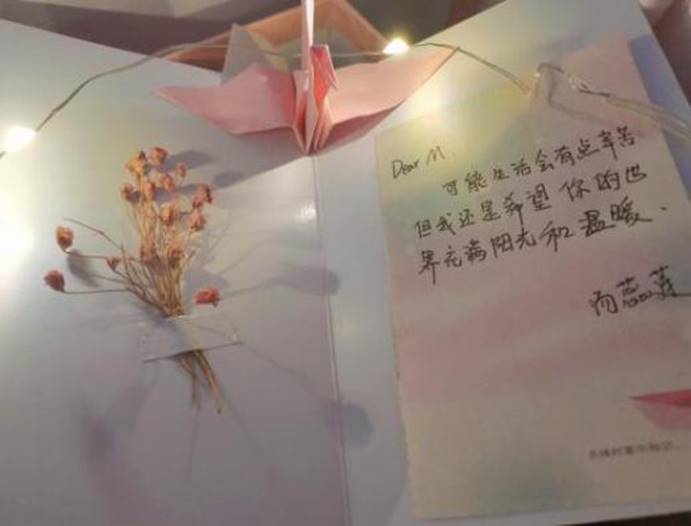 Dear M.
可能生活会有点辛苦
但我还是希望你的世
界充满阳光和温暖.